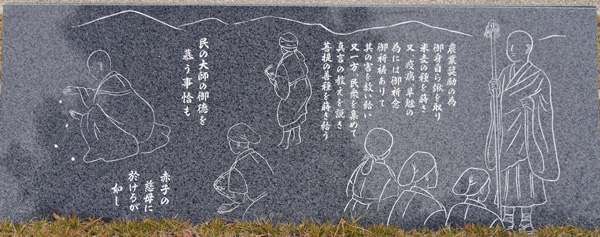 農業奨励の為
御身自ら鍬を取り
米麦の種を蒔き
又 疫病 旱魃の
為には御祈念
御祈祷ありて
其の害を救い給い
又一方 民衆を集めて
真言の教えを説き
菩提の善種を蒔き給う
民の大師の御徳を
慕う事恰も
赤子の
慈母に
於けるが
如し